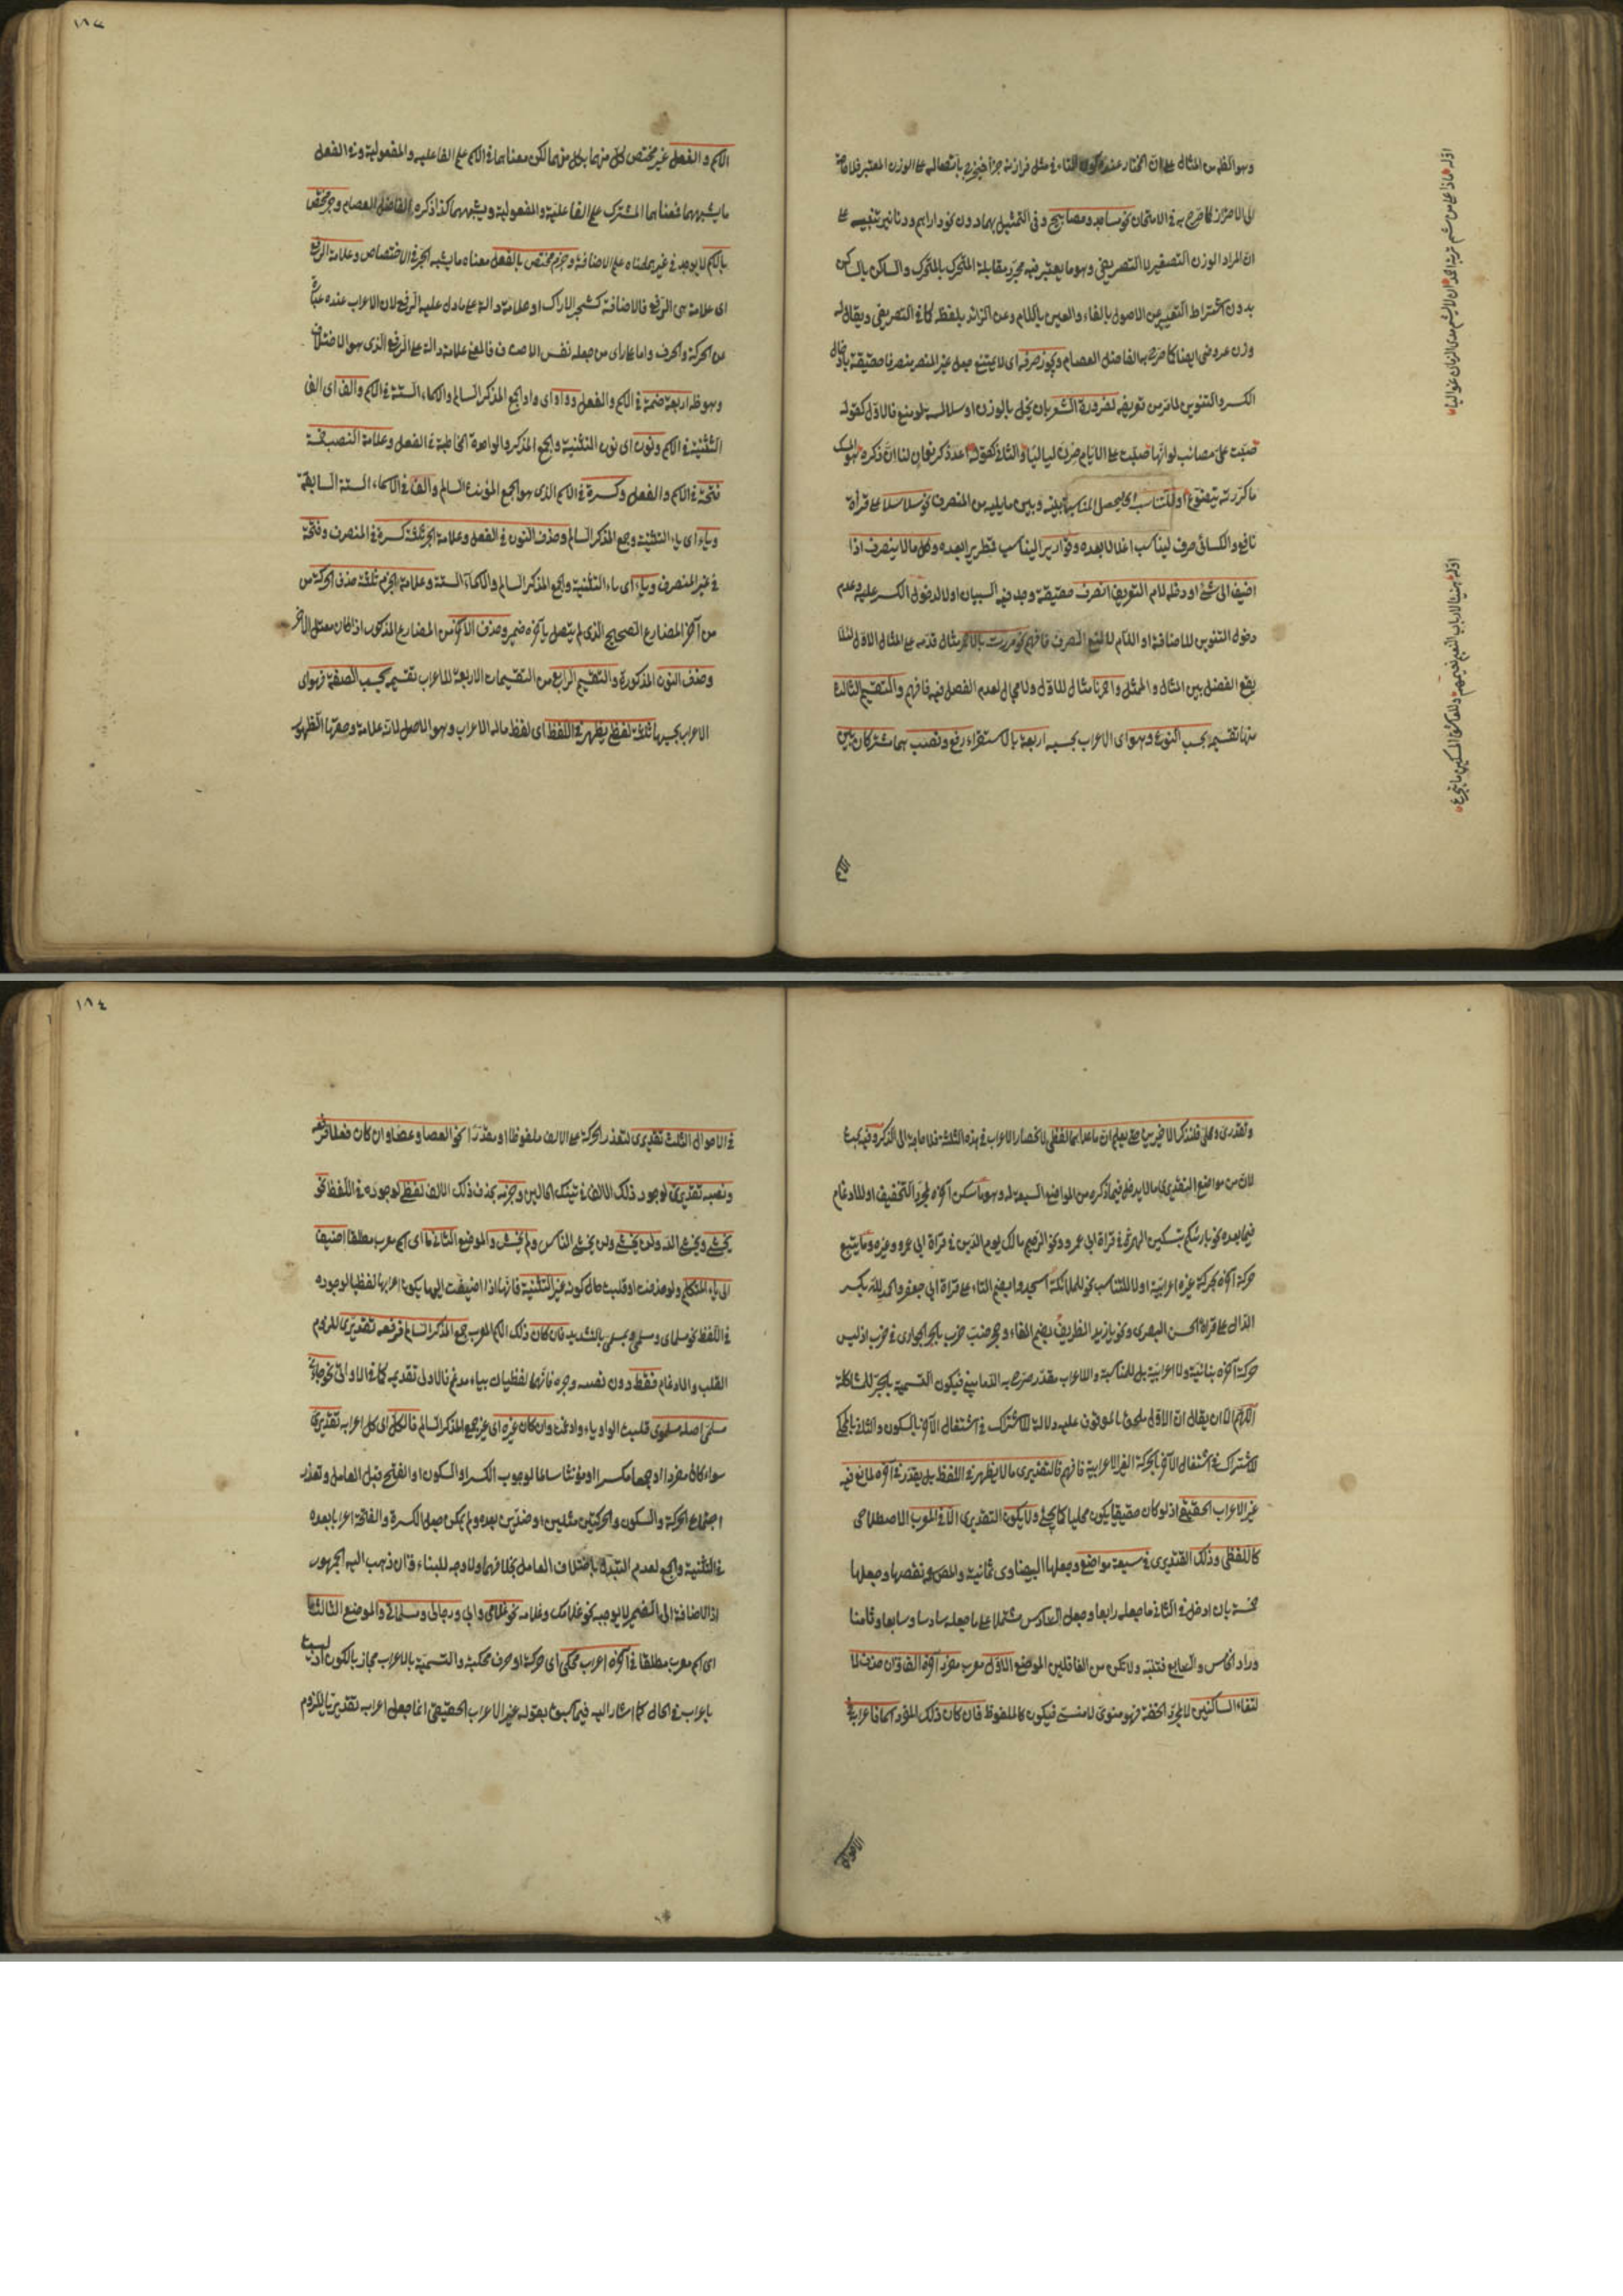 وهو اظهر من المثال على ان المختار عنده كون التاء في مثل فرازنة جزأ فيخرج باتصاله على الوزن المعتبر فلا حاجة
الى الاحتراز كما صرح به في الامتحان نحو مساجد ومصابيح وفي التمثيل بهما دون نحو دراهم ودنانير تنبيه على
ان المراد الوزن التصغيري لا التصريفي وهو ما يعتبر فيه مجرد مقابلة المتحرك بالمتحرك والساكن بالساكن
بدون اشتراط التعبير عن الاصول بالفاء والعين واللام وعن الزائد بلفظه كما في التصريفي ويقال له
وزن عروضي ايضا كما صرح به الفاضل العصام ويجوز صرفه اى لا يمتنع جعل غير المنصرف منصرفا حقيقة بادخال
الكسر والتنوين لما مر من تعريفه لضرورة الشعر بان يخل بالوزن او سلاسته لو منع فالاول كقوله
صبت علي مصائب لو انها صبت على الايام صرن لياليا والثاني كقوله اعد ذكر نعمان لنا ان ذكره هو المسك
ما كررته يتضوع او للتناسب اى ليحصل المناسبة بينه وبين ما يليه من المنصرف نحو سلاسلا على قرأة
نافع والكسائى صرف ليناسب اغلالا بعده وقواريرا ليناسب قطريرا بعده وكل ما لا ينصرف اذا
اضيف الى شئ او دخله لام التعريف انصرف حقيقة وجد فيه السببان اولا لدخول الكسر عليه وعدم
دخول التنوين للاضافة او اللام لا لمنع الصرف فافهم نحو مررت بالاحمر مثال قدمه على المثال الاول لئلا
يقع الفصل بين المثال والممثل واحمرنا مثال للاول ولا مجال لعدم الفصل فيه فافهم والتقسيم الثالث
منها تقسيم بحسب النوع وهو اى الاعراب بحسبه اربعة بالاستقراء رفع ونصب هما مشتركان بين
الاسم
اوله ماذا على من شم تربة احمد ان لا يشم مدى الزمان غواليا
اوله هنيئا لارباب النعيم نعيمهم وللعاشق المسكين ما يتجرع
١٨٣
الاسم والفعل غير مختص كل منهما بكل منهما لكن معناهما في الاسم على الفاعلية والمفعولية وفي الفعل
ما يشبههما فمعناهما المشترك على الفاعلية والمفعولية وشبههما كذا ذكره الفاضل العصام وجر مختص
بالاسم لا يوجد في غيره معناه على الاضافة وجزم مختص بالفعل معناه ما يشبه الجر في الاختصاص وعلامة الرفع
اى علامة هى الرفع فالاضافة كشجر الاراك او علامة دالة على ما دل عليه الرفع لان الاعراب عنده عبارة
عن الحركة والحرف واما على رأى من جعله نفس الاختلاف فالمعنى علامة دالة على الرفع الذى هو الاختلاف
وهو ظ اربعة ضمة في الاسم والفعل وواو اى واو الجمع المذكر السالم والاسماء الستة في الاسم والف اى الف
التثنية في الاسم ونون اى نون التثنية والجمع المذكر والواحدة المخاطبة في الفعل وعلامة النصب خمسة
فتحة في الاسم والفعل وكسرة في الاسم الذى هو الجمع المؤنث السالم والف في الاسماء الستة السابقة
وياء اى ياء التثنية وجمع المذكر السالم وحذف النون في الفعل وعلامة الجر ثلثة كسرة في المنصرف وفتحة
في غير المنصرف وياء اى ياء التثنية والجمع المذكر السالم والاسماء الستة وعلامة الجزم ثلثة حذف الحركة من
من آخر المضارع الصحيح الذى لم يتصل بآخره ضمير وحذف الآخر من المضارع المذكور اذا كان معتل الآخر
وحذف النون المذكورة والتقسيم الرابع من التقسيمات الاربعة للاعراب تقسيم بحسب الصفة فهو اى
الاعراب بحسبها ثلثة لفظى يظهر في اللفظ اى لفظ ماله الاعراب وهو الاصل لانه علامة وحقها الظهور
وتقديرى ومحلى فلنذكر الاخيرين حتى يعلم ان ما عداهما لفظى لانحصار الاعراب في هذه الثلثة فلا حاجة الى الذكر وفيه بحث
لان من مواضع التقديرى ما لا يدخل فيما ذكره من المواضع السبعة له وهو ما سكن آخره لمجرد التخفيف او للادغام
فيما بعده نحو بارئكم بتسكين الهمزة في قرأة ابى عمرو ونحو الرحيم مالك يوم الدين في قرأة ابى عمرو وغيره وما يتبع
حركة آخره لحركة غيره اعرابية اولا للتناسب نحو للملائكة اسجدوا بضم التاء على قرأة ابى جعفر والحمد لله بكسر
الدال على قرأة الحسن البصرى ونحو يا زيد الظريف بضم الفاء وجحر ضب خرب بالجر الجوارى في خرب اذ ليس
حركة آخره بنائية ولا اعرابية بل للمناسبة والاعراب مقدر صرح به الدمامينى فيكون التسمية بالجر للمشاكلة
اللهم الا ان يقال ان الاول ملحق بالموقوف عليه دلالة للاشتراك في اشتغال الآخر بالسكون والثانى بالمحكى
للاشتراك في اشتغال الآخر بالحركة الغير الاعرابية فافهم فالتقديرى ما لا يظهر في اللفظ بل يقدر في آخره لمانع فيه
غير الاعراب الحقيقى اذ لو كان حقيقيا يكون محليا كما يجئ ولا يكون التقديرى الا في المعرب الاصطلاحى
كاللفظى وذلك التقديرى في سبعة مواضع وجعلها البيضاوى ثمانية والمص نقصها وجعلها
خمسة بان ادخل في الثانى ما جعله رابعا وجعل السادس مشتملا على ما جعله سادسا وسابعا وثامنا
وزاد الخامس والسابع فتنبه ولا تكن من الغافلين الموضع الاول معرب مفرد آخره الف وان حذف لا
لتقاء الساكنين لا لمجرد الخفة فهو منوى لا منسى فيكون كالملفوظ فان كان ذلك المفرد اسما فاعرابه
الاحوال
١٨٤
في الاحوال الثلث تقديرى لتعذر الحركة على الالف ملفوظا او مقدرا نحو العصا وعصا وان كان فعلا فرفعه
ونصبه تقديرى لوجود ذلك الالف في تينك الحالين وجزمه بحذف ذلك الالف لفظى لوجوده في اللفظ نحو
يخشى ويخشى الله ولن يخشى ولن يخشى الناس ولم يخش والموضع الثانى ما اى اسم معرب مطلقا اضيف
الى ياء المتكلم ولو حذفت او قلبت حال كونه غير التثنية فانها اذا اضيفت اليها يكون اعرابها لفظيا لوجوده
في اللفظ نحو مسلماى ومسلمى بالتشديد فان كان ذلك الاسم المعرب جمع المذكر السالم فرفعه تقديرى للزوم
القلب والادغام فقط دون نصبه وجره فانهما لفظيان بياء مدغم فالاولى تقديمه كما في الاولى نحو جاءنى
مسلمى اصله مسلموى قلبت الواو ياء وادغمت وان كان غيره اى غير جمع المذكر السالم فالكل اى كل اعرابه تقديرى
سواء كان مفردا او جمعا مكسرا او مؤنثا سالما لوجوب الكسر او السكون او الفتح قبل العامل وتعذر
اجتماع الحركة والسكون والحركتين مثلين او ضدين بعده ولم يمكن جعل الكسرة والفافة اعرابا بعده
في التثنية والجمع لعدم التبدل باختلاف العامل بخلافهما ولا وجه للبناء وان ذهب اليه الجمهور
اذ الاضافة الى الضمير لا يوجبه نحو غلامك وغلامه نحو غلامى وابى ورجالى ومسلماتى والموضع الثالث ما
اى اسم معرب مطلقا في آخره اعراب محكى اى حركة او حرف محكية والتسمية بالاعراب مجاز بالكون اذ ليست
باعراب في الحال كما اشار اليه فيما سبق بقوله غير الاعراب الحقيقى انما جعل اعرابه تقديريا للزوم